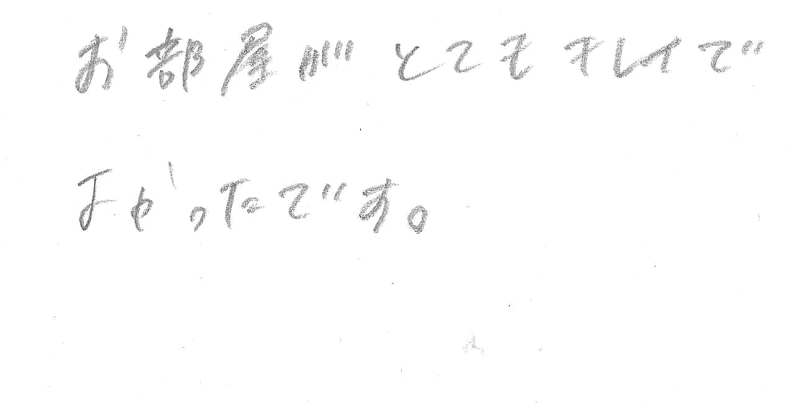 お部屋がとてもキレイで
よかったです。